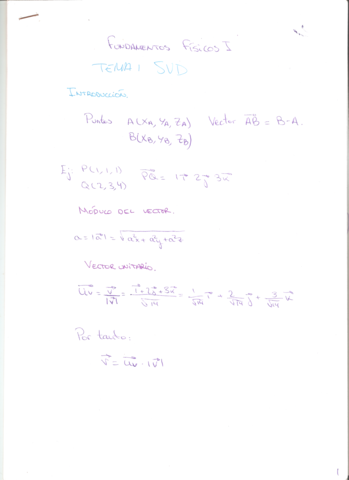 FUNDAMENTOS FÍSICOS I
TEMA 1 SVD
INTRODUCCIÓN
Puntos A(XA, YA, ZA) Vector AB⃗ = B-A.
B(XB, YB, ZB)
Ej P(1,1,1) PQ⃗ = 1i⃗ 2j⃗ 3k⃗
Q(2,3,4)
MÓDULO DEL VECTOR.
a = |a⃗| = √a²x + a²y + a²z
VECTOR UNITARIO.
Uv⃗ = v⃗/|v⃗| = i⃗+2j⃗+3k⃗/√14 = 1/√14 i⃗ + 2/√14 j⃗ + 3/√14 k⃗
Por tanto:
v⃗ = Uv⃗ · |v⃗|
1